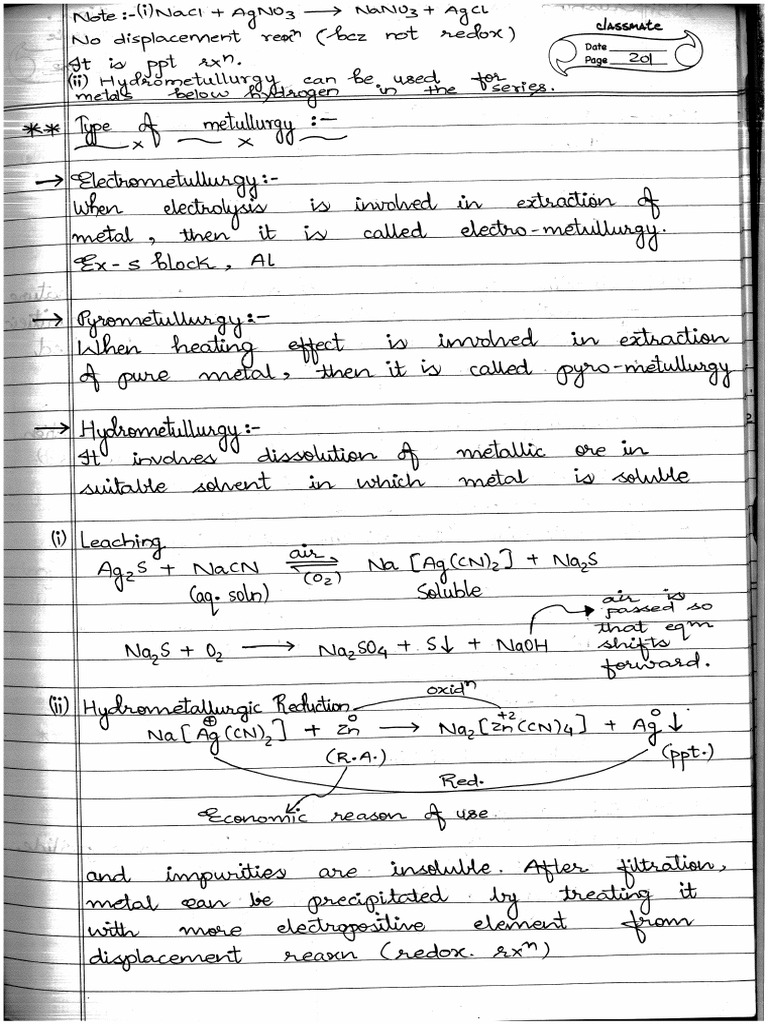 Note :- (i) NaCl + AgNO3 ⟶ NaNO3 + AgCl
No displacement reaxn (bcz not redox)
It is ppt rxn.
(ii) Hydrometullurgy can be used for
metals below hydrogen in the series.
classmate
Date
Page 201
** Type of metullurgy :-
→ Electrometullurgy:-
When electrolysis is involved in extraction of
metal, then it is called electro-metullurgy.
Ex- s block, Al
→ Pyrometullurgy:-
When heating effect is involved in extraction
of pure metal, then it is called pyro-metullurgy
→ Hydrometullurgy:-
It involves dissolution of metallic ore in
suitable solvent in which metal is soluble
(i) Leaching
Ag2S + NaCN ⇌ Na [Ag(CN)2] + Na2S
air
(O2)
(aq. soln) Soluble
air is
passed so
that eqm
shifts
forward.
Na2S + O2 ⟶ Na2SO4 + S↓ + NaOH
(ii) Hydrometallurgic Reduction
oxidn
Na[Ag(CN)2] + Zn ⟶ Na2[Zn(CN)4] + Ag ↓
⊕ 0 +2 0
(R.A.) (ppt.)
Red.
Economic reason of use
and impurities are insoluble. After filtration,
metal can be precipitated by treating it
with more electropositive element from
displacement reaxn (redox. rxn)